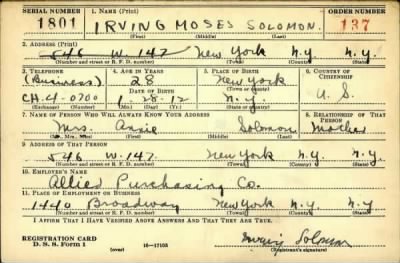 SERIAL NUMBER 1. NAME (Print) ORDER NUMBER
1801 IRVING MOSES SOLOMON. 137
(First) (Middle) (Last)
2. ADDRESS (Print)
546 W. 147 New York N.Y. N.Y.
(Number and street or R. F. D. number) (Town) (County) (State)
3. TELEPHONE 4. AGE IN YEARS 5. PLACE OF BIRTH 6. COUNTRY OF CITIZENSHIP
(Business) 28 New York
DATE OF BIRTH (Town or county)
CH.4-0700 1-28-12 N.Y. U.S.
(Exchange) (No.) (Mo.) (Day) (Yr.) (State or country)
7. NAME OF PERSON WHO WILL ALWAYS KNOW YOUR ADDRESS 8. RELATIONSHIP OF THAT PERSON
Mrs. Annie Solomon Mother
(Mr., Mrs., Miss) (First) (Middle) (Last)
9. ADDRESS OF THAT PERSON
546 W. 147. New York N.Y. N.Y.
(Number and street or R. F. D. number) (Town) (County) (State)
10. EMPLOYER'S NAME
Allied Purchasing Co.
11. PLACE OF EMPLOYMENT OR BUSINESS
1440 Broadway New York N.Y. N.Y.
(Number and street or R. F. D. number) (Town) (County) (State)
I AFFIRM THAT I HAVE VERIFIED ABOVE ANSWERS AND THAT THEY ARE TRUE.
REGISTRATION CARD
D. S. S. Form 1 (over) 16—17105 Irving Solomon
(Registrant's signature)